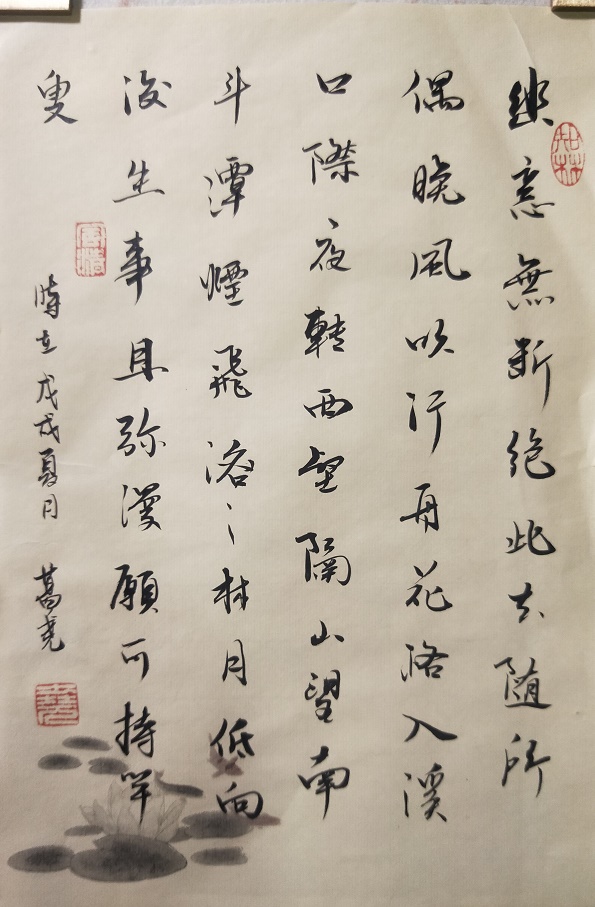 幽意無斷絶此去随所
偶晚風吹行舟花路入溪
口際夜轉西壑隔山望南
斗潭煙飛溶々林月低向
後生事且弥漫願为持竿
叟
時在戊戌夏月 葛堯